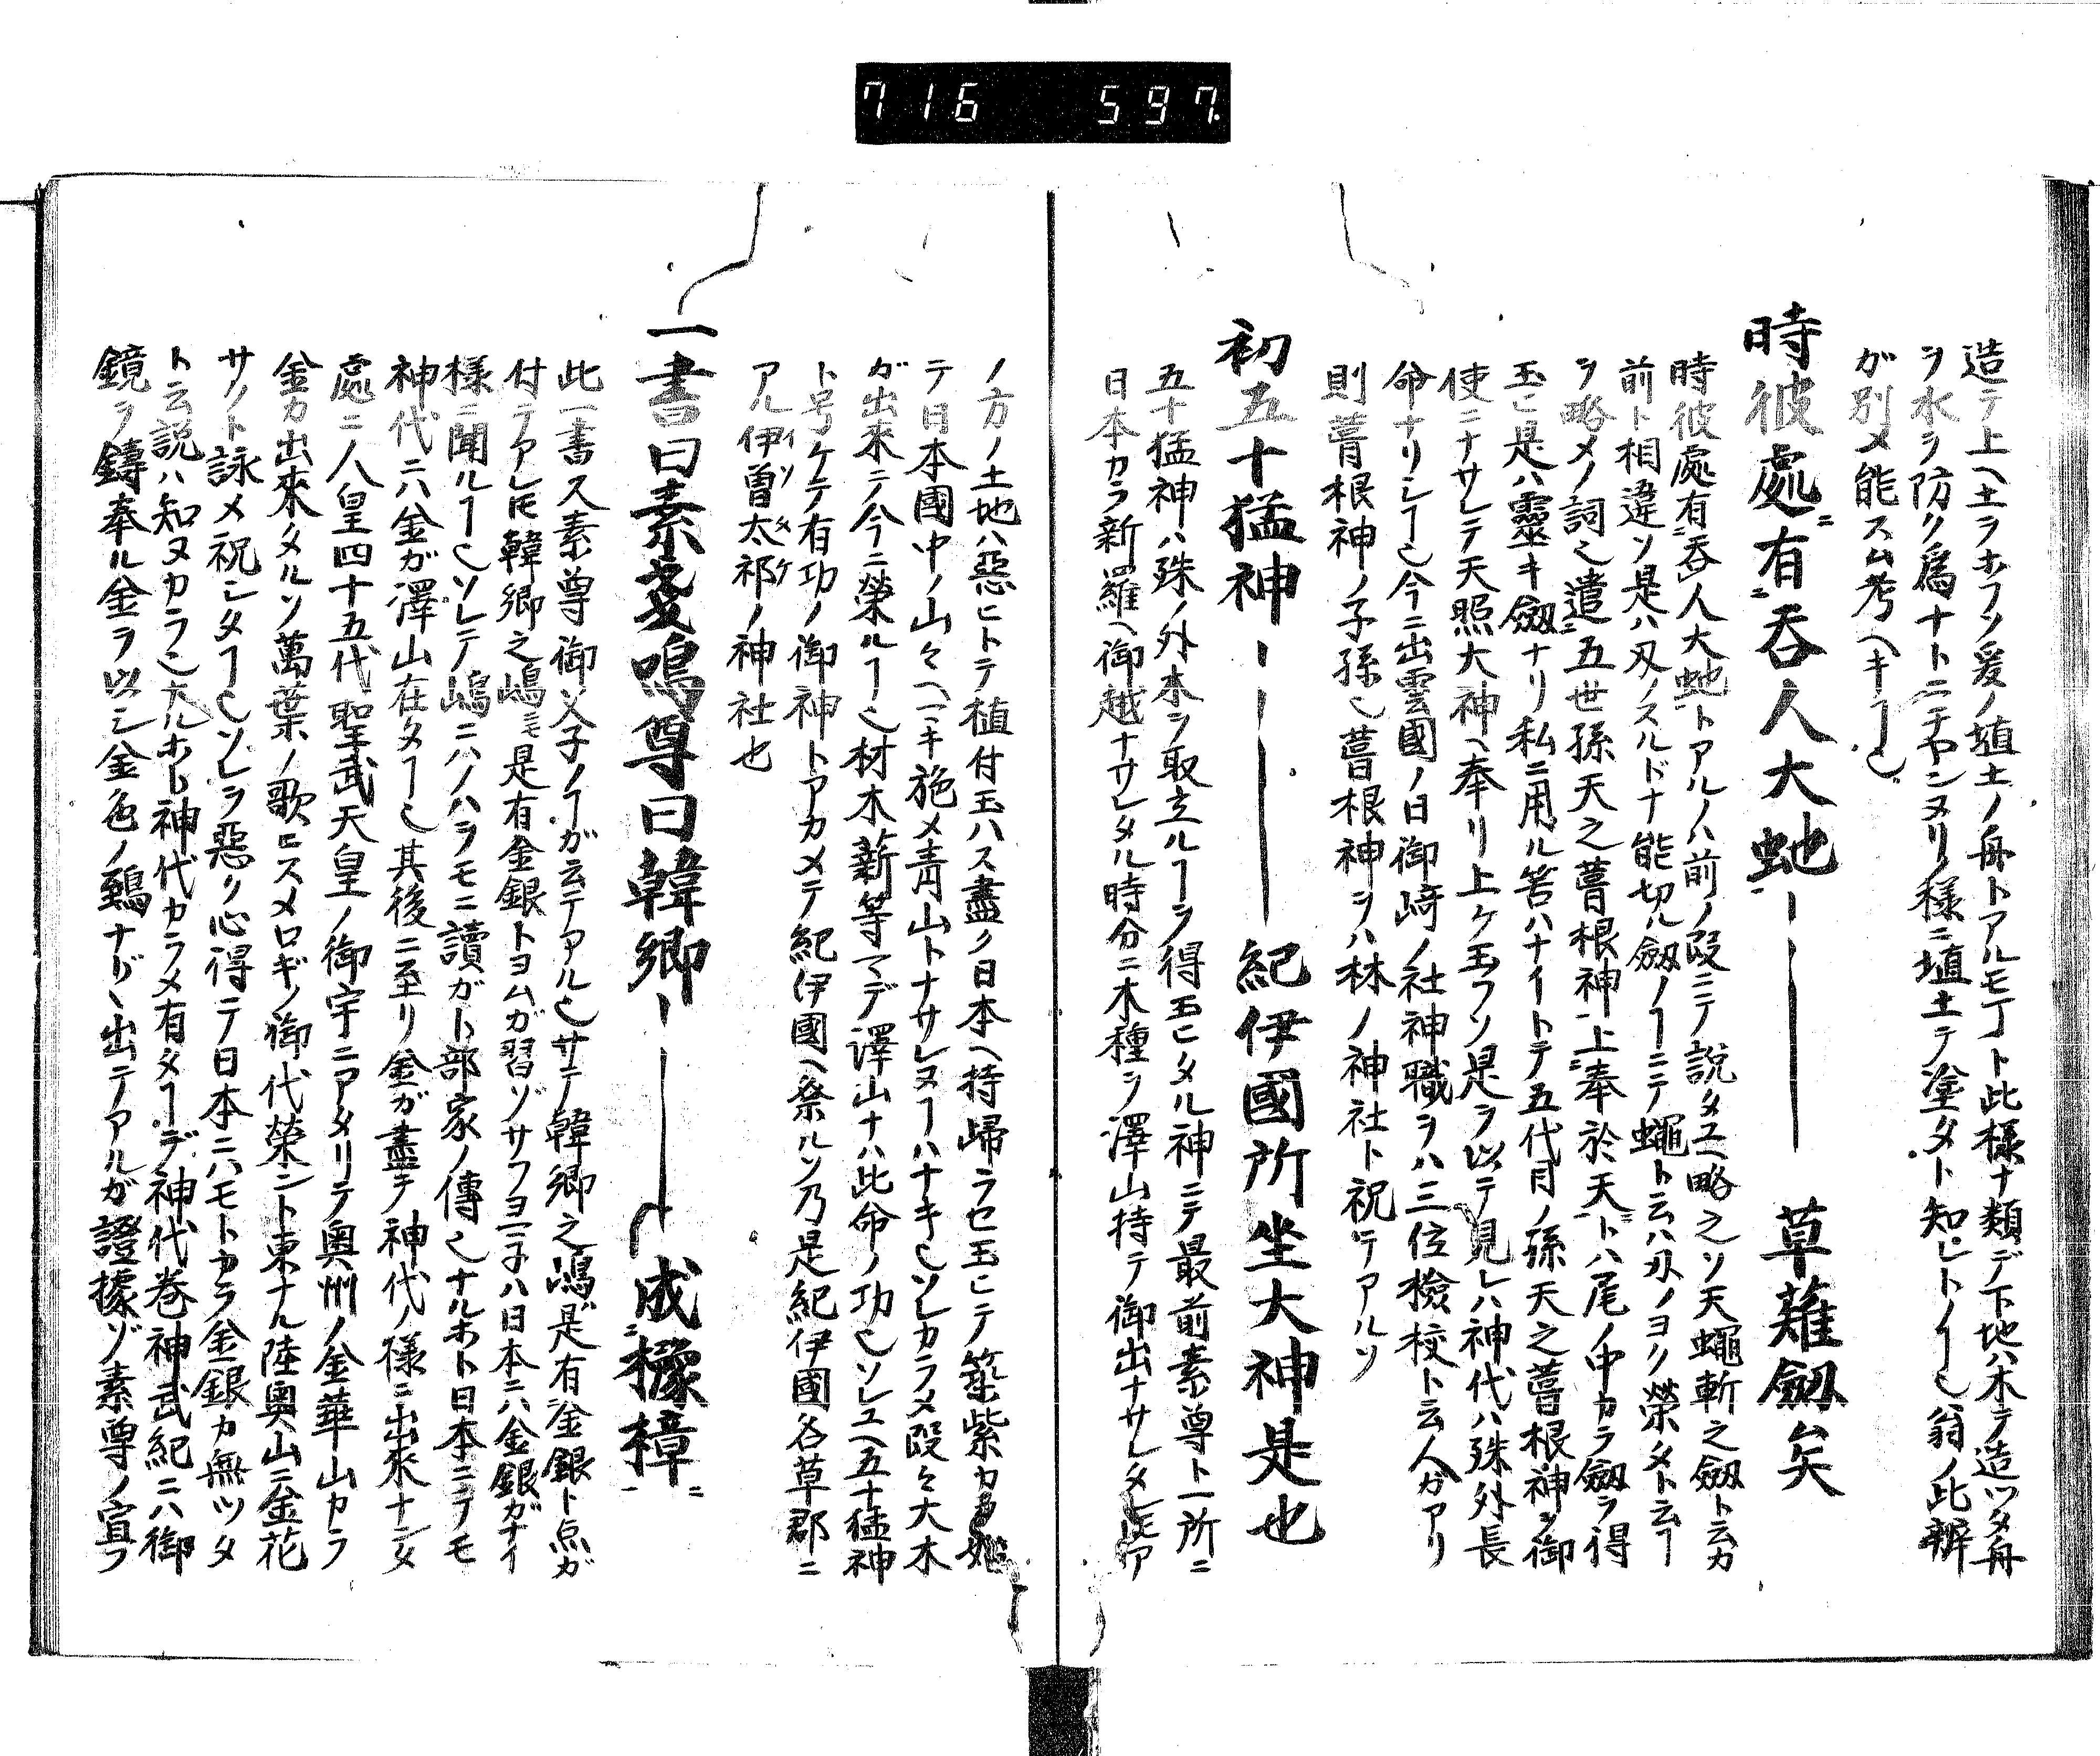 716 597.
造テ上ヘ土ヲホフソ爰ノ埴土ノ舟トアルモ丁ト此様ナ類デ下地ハ木テ造ツタ舟
ヲ水ヲ防ク爲ナトニチヤンヌリノ様ニ埴土テ塗タト知レトノヿ也翁ノ此辨
ガ別乄能スム考ヘキヿ也
時彼處有呑人大虵ーーー草薙劔矣
時彼處有呑人大虵トアルノハ前ノ段ニテ説タユヘ略之ソ天蠅斬之劔ト云カ
前ト相違ソ是ハ刄ノスルドナ能切ル劔ノヿニテ蠅ト云ハ刄ノヨク榮タト云ヿ
ヲ略メノ詞也遣五世孫天之葺根神上奉於天トハ尾ノ中カラ劔ヲ得
玉ヒ是ハ靈キ劔ナリ私ニ用ル筈ハナイトテ五代目ノ孫天之葺根神ヲ御
使ニナサレテ天照大神ヘ奉リ上ケ玉フソ是ヲ以テ見レハ神代ハ殊外長
命ナリシヿ也今ニ出雲國ノ日御﨑ノ社神職ヲハ三位檢校ト云人ガアリ
則葺根神ノ子孫也葺根神ヲハ林ノ神社ト祝テアルソ
初五十猛神ーーー紀伊國所坐大神是也
五十猛神ハ殊ノ外木ヲ取立ルヿヲ得玉ヒタル神ニテ最前素尊ト一所ニ
日本カラ新羅ヘ御越ナサレタル時分ニ木種ヲ澤山持テ御出ナサレタ
ノ方ノ土地ハ惡ヒトテ植付玉ハス盡ク日本ヘ持歸ラセ玉ヒテ築紫カラ始
テ日本國中ノ山々ヘマキ施メ青山トナサレヌヿハナキ也ソレカラメ段々大木
ガ出來ニノ今ニ榮ルヿ也材木薪等マデ澤山ナハ此命ノ功也ソレユヘ五十猛神
ト号ケテ有功ノ御神トアカメテ紀伊國ヘ祭ルソ乃是紀伊國名草郡ニ
アル伊曽太祁ノ神社也
一書曰素戔嗚尊曰韓郷ーーー成櫲樟
此一書ス素尊御父子ノヿガ云テアル也サテ韓郷之嶋是有金銀ト点ガ
付テアレ𪜈韓郷之嶋ニモ是有金銀トヨムガ習ゾサフヨ子ハ日本ニハ金銀ガナイ
様ニ聞ルヿ也ソレテ嶋ニハノハヲモニ讀ガト部家ノ傳也ナルホト日本ニテモ
神代ニハ金ガ澤山在タヿ也其後ニ至リ金ガ盡テ神代ノ様ニ出來ナンタ
處ニ人皇四十五代聖武天皇ノ御宇ニアタリテ奥州ノ金華山カラ
金カ出來タルソ萬葉ノ歌ニスメロギノ御代榮ント東ナル陸奥山ニ金花
サクト詠メ祝シタヿ也ソレヲ惡ク心得テ日本ニハモトカラ金銀カ無ツタ
ト云説ハ知ヌカラ也ナルホト神代カラメ有タヿデ神代巻神武紀ニハ御
鏡ヲ鑄奉ル金ヲ以シ金色ノ鵄ナド出テアルガ證據ゾ素尊ノ宣フ